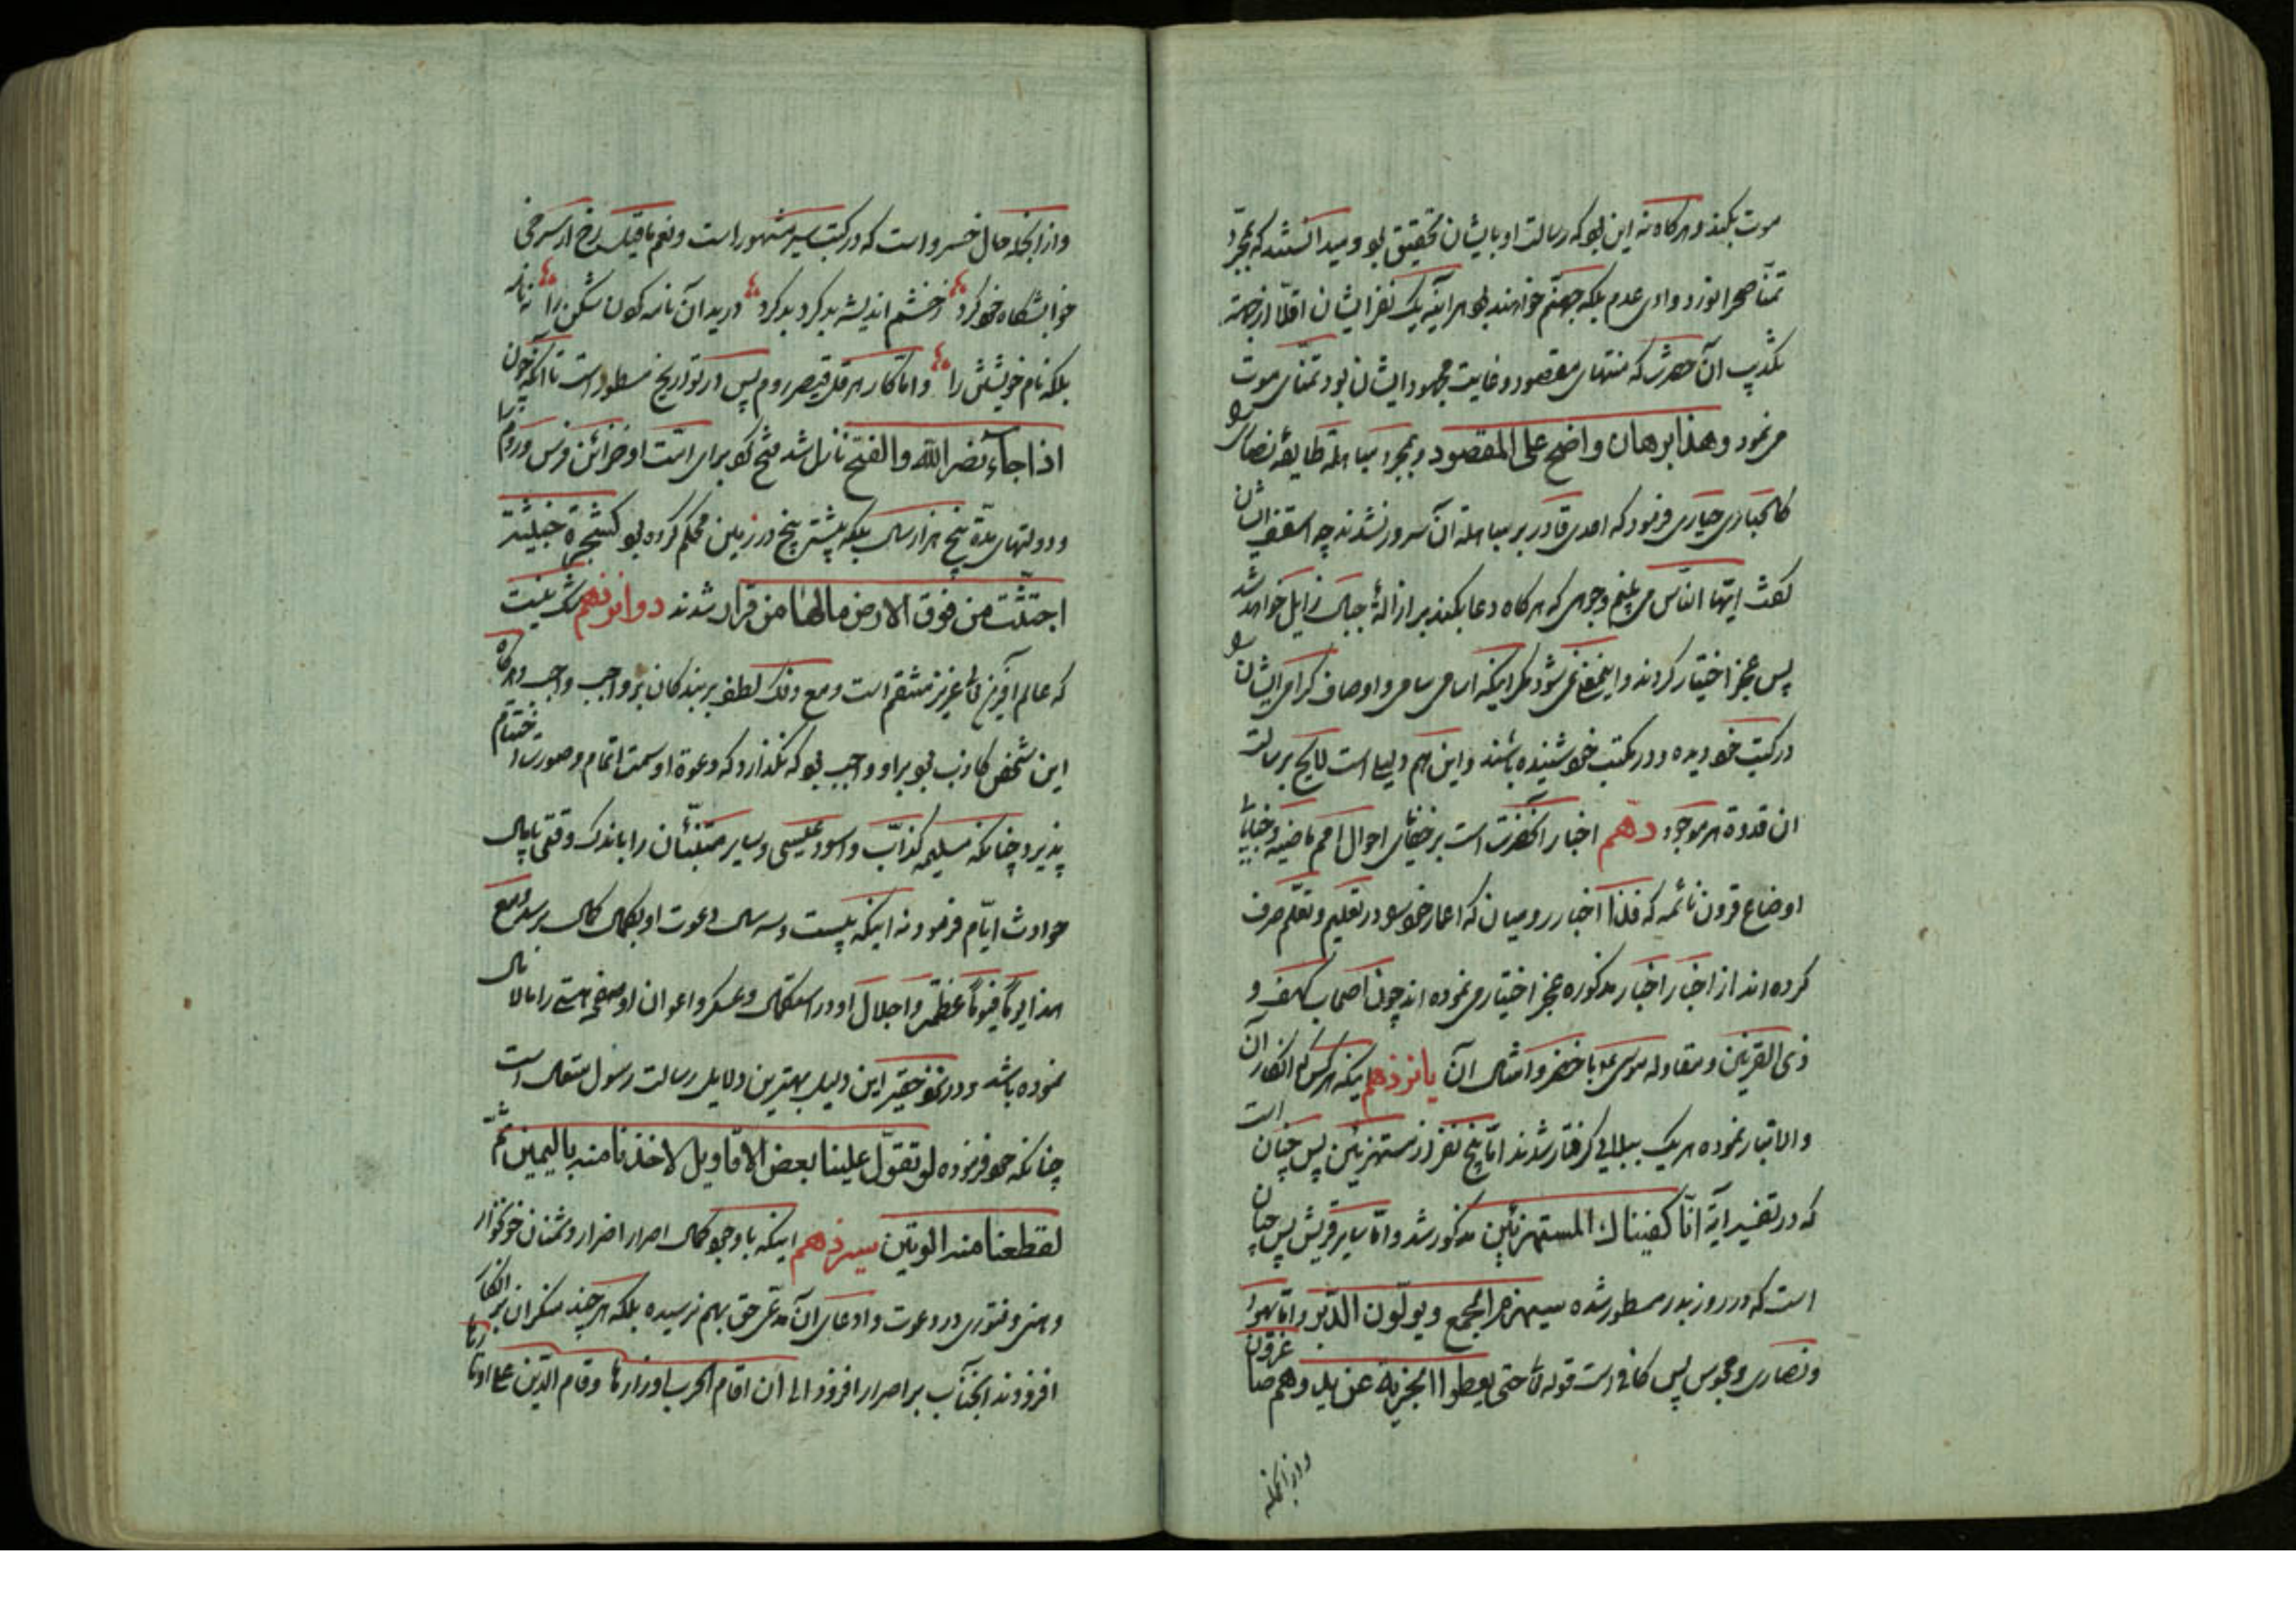 موت بکنند و هرکاه نه این بو که رسالت او بایشان تحقیق بو و میدانستند که بمجرد
تمنا صحرا نورد وادی عدم بلکه جهنم خواهند بو هر آینه یک نفر ایشان اقلا از جهة
تکذیب آن حضرت که منتهای مقصود و غایت مجهود ایشان بود تمنای موت
می نمود و هذا برهان واضح علی المقصود و بمجرد مباهلة طایفهٔ نصاری
حیاری فرمود که احدی قادر بر مباهلة آن سرور نشدند چه اسقف ایشان
گفت ایها الناس می بینم وجوهی که هرکاه دعا بکنند بر ازالهٔ جبال زایل خواهد شد
پس عجز اختیار کردند و این نمی شود مکر اینکه اسامی سامی و اوصاف کرامی ایشان
در کتب خو دیده و در مکتب خو شنیده باشند و این هم دلیلی است لایح بر رسالت
ان قدوة هر موجود دهم اخبار آنحضرت است بر خفایای احوال امم ماضیه و خبایای
اوضاع قرون نائمه که فلذا اخبار رومیان که اعمار خو در تعلیم و تعلم صرف
کرده اند از اخبار اخبار مذکوره عجز اختیار می نموده اند چون اصحاب کهف و
ذی القرنین و مقاوله موسی ع با خضر و امثال آن یانزدهم اینکه هر کس که انکار آن
والاتبار نموده هر یک ببلایی کرفتار شدند اما پنج نفر از مستهزئین پس چنان است
که در تفسیر آیة انا کفیناک المستهزئین مذکور شد و اما سایر قریش پس چنان
است که در روز بدر مسطور شده سیهزم الجمع و یولون الدبر و اما یهود
و نصاری و مجوس پس کافی است قوله تع حتی یعطوا الجزیة عن ید و هم صاغرون
و از انجمله
و از انجمله حال خسرو است که در کتب سیر مشهور است و نعم ما قیل رخ از سرخی
خو کرد ز خشم اندیشه بد کرد بد کرد درید آن نامه کون شکن را نه نامه
بلکه نام خویشتن را و اما کار هرقل قیصر روم پس در تواریخ مسطور است تا آنکه چون
اذا جاء نصر الله والفتح نازل شد فتح کو برای امت او خزائن فرس و روم را
و دولتهای مدة پنج هزار سال بلکه بیشتر بیخ در زمین محکم کرده بو کشجرة خبیثة
اجتثت من فوق الارض مالها من قرار شدند دوانزدهم شک نیست
که عالم آفرین تع عزیز منتقم است و مع ذلک لطف بر بندکان بر او واجب و هرکاه
این شخص کاذب بو بر او واجب بو که نکذارد که دعوة او سمت اتمام و صورت اختتام
پذیرد چنانکه مسلیمه کذاب و اسود عیسی و سایر متنبئان را باندک وقتی پایمال
حوادث ایام فرمود نه اینکه بیست و سه سال دعوت او بکمال برسد و مع
هذا یوما فیوما عظمت و اجلال او در استکمال و عسکر و اعوان او صفحه هستی را مالامال
نموده باشد و در نزد حقیر این دلیل بهترین دلایل رسالت رسول متعال است
چنانکه خو فرموده لو تقول علینا بعض الاقاویل لاخذنا منه بالیمین ثم
لقطعنا منه الوتین سیزدهم اینکه با وجو کمال اصرار اضرار دشمنان خونخوار
وهنی و فتوری در دعوت و ادعای آن مدعی حق بهم نرسیده بلکه هر چند منکران بر انکار
افزودند انجناب بر اصرار افزود الی ان اقام الحرب اوزارها و قام الدین علی اوتارها